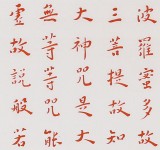 波羅蜜多故
三菩提故知
大神咒是大
無等等咒能
虛故說般若